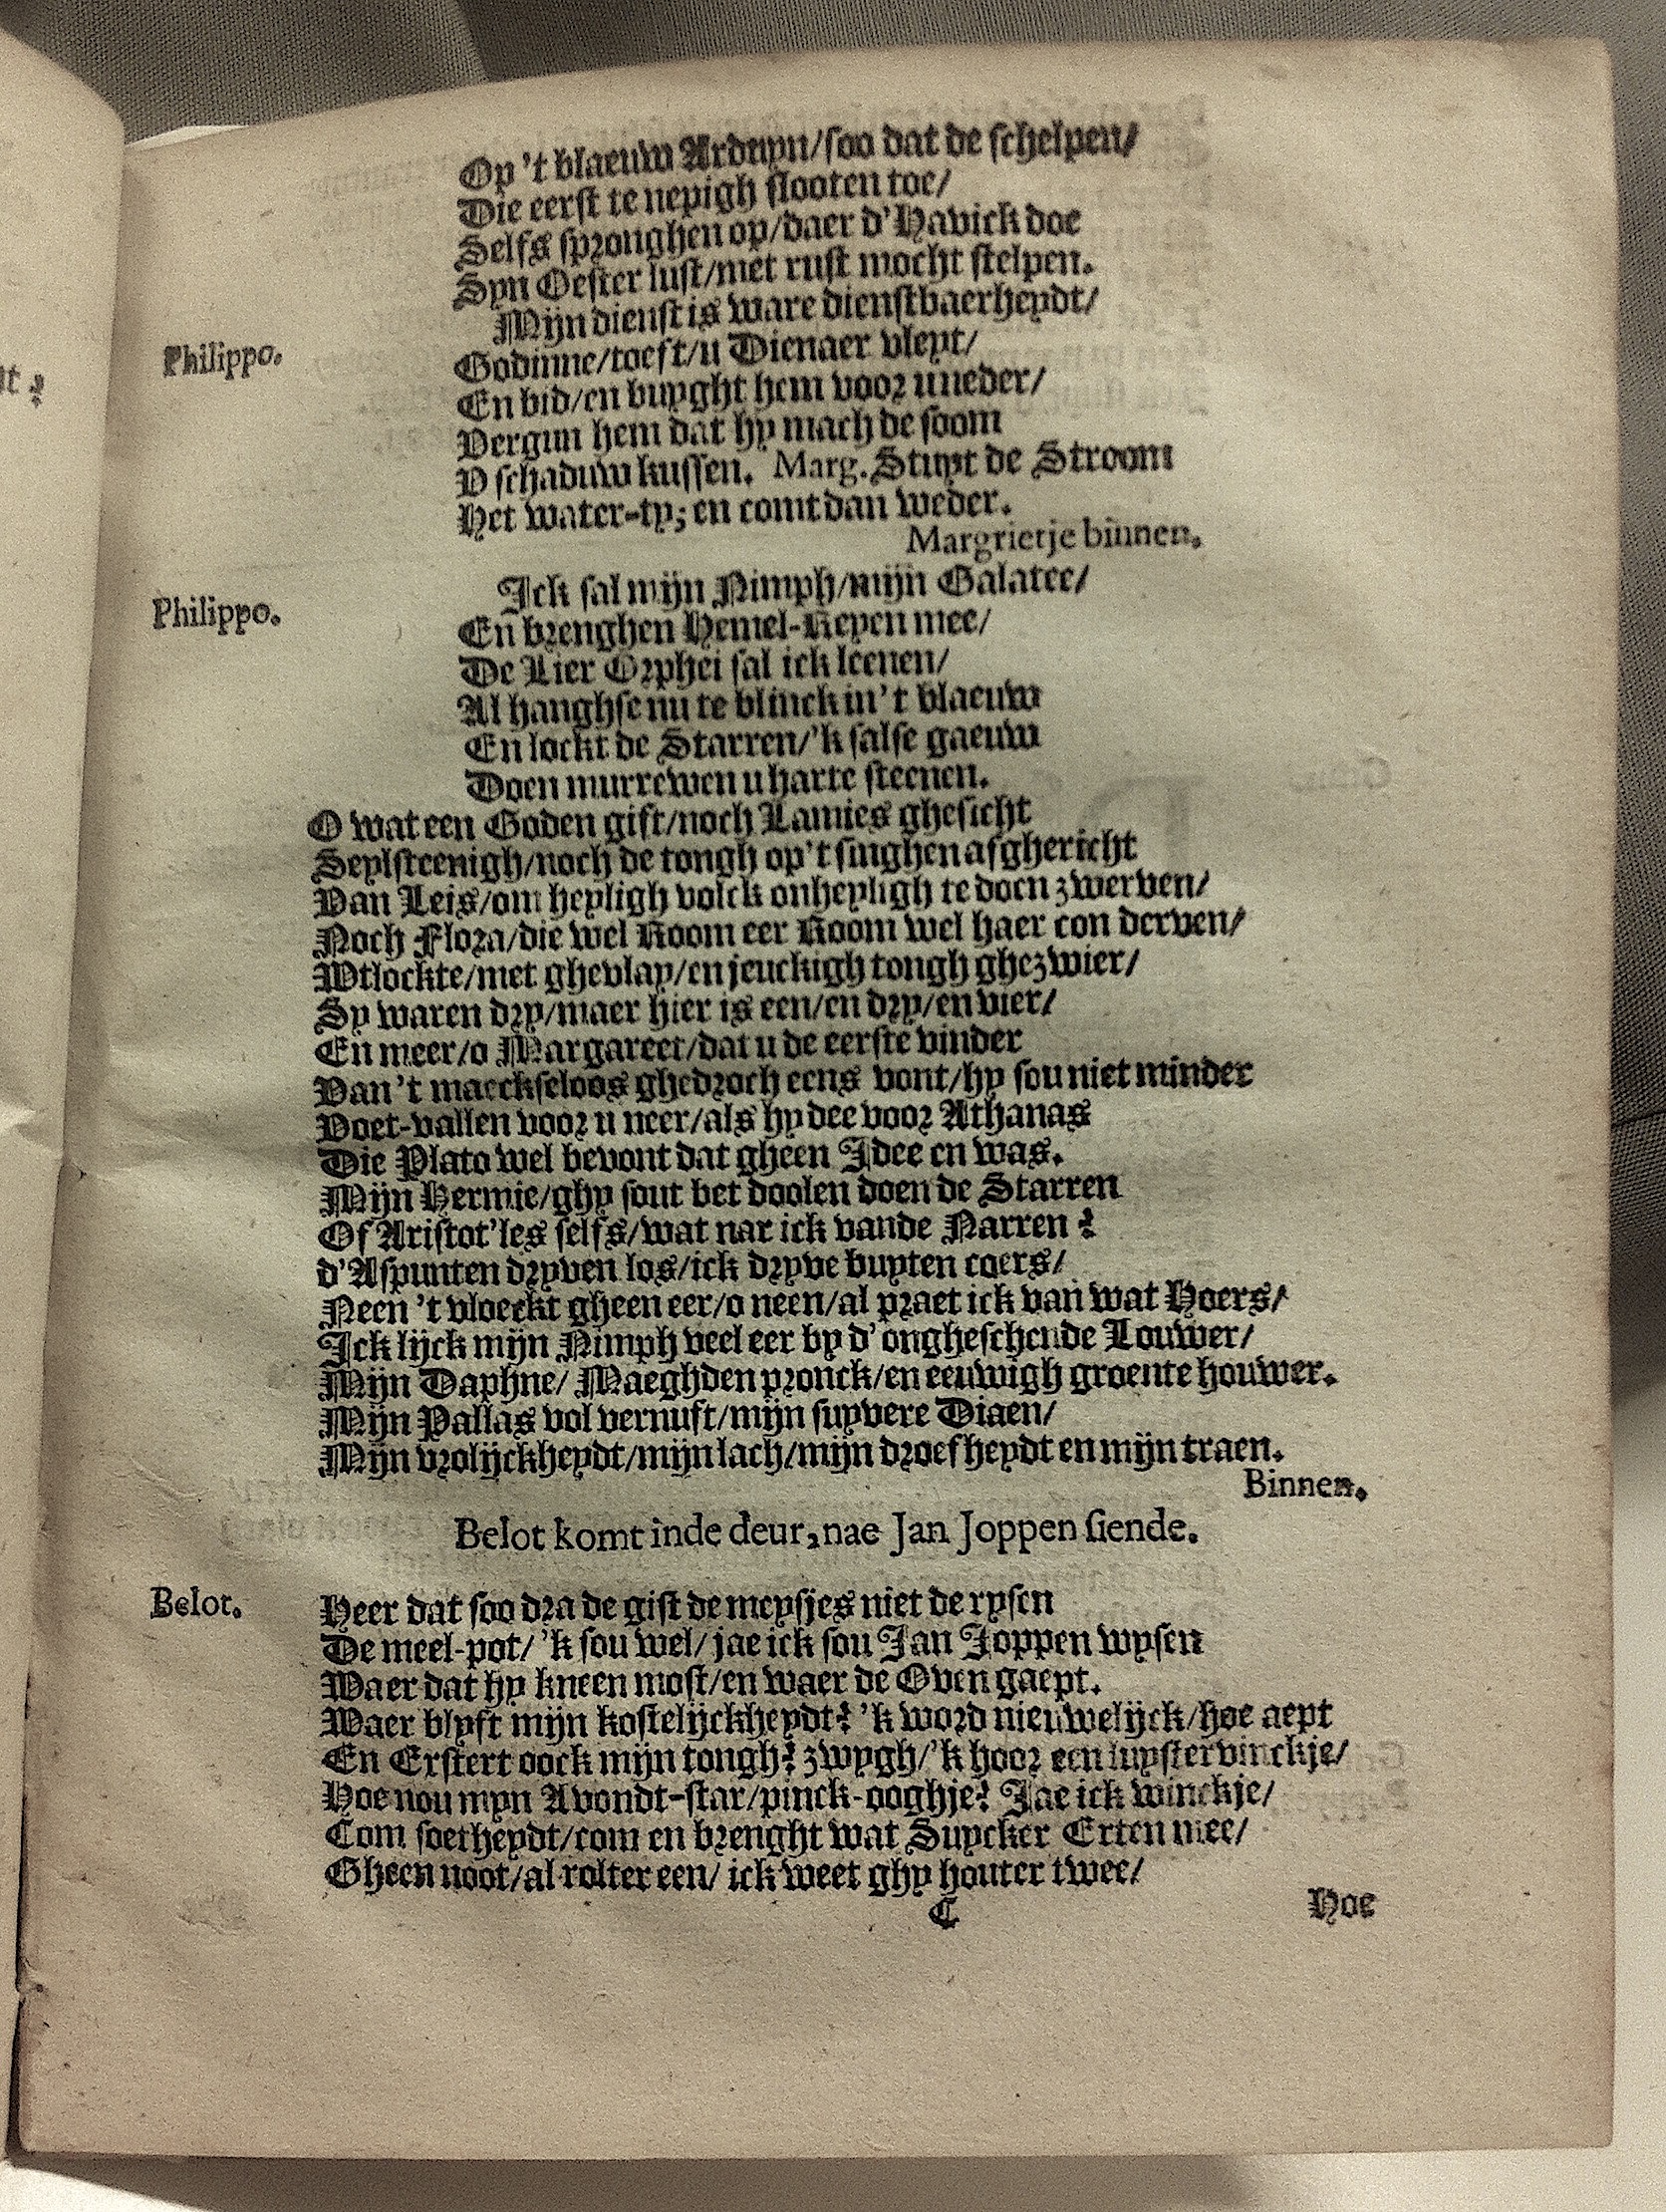 Op 't blaeuw Arduyn/soo dat de schelpen/
Die eerst te nepigh slooten toe/
Selfs spronghen op/daer d'Havick doe
Syn Oester lust/met rust mocht stelpen.
Philippo. Mijn dienst is ware dienstbaerheydt/
Godinne/toeft/u Dienaer vleyt/
En bid/en buyght hem voor u neder/
Vergun hem dat hy mach de soom
V schaduw kussen. Marg. Stuyt de Stroom
Het water-ty; en comt dan weder.
Margrietje binnen.
Philippo. Ick sal mijn Nimph/mijn Galatee/
En brenghen Hemel-Reyen mee/
De Lier Orphei sal ick leenen/
Al hanghse nu te blinck in 't blaeuw
En lockt de Starren/'k salse gaeuw
Doen murrewen u harte steenen.
O wat een Goden gift/noch Lamies ghesicht
Seylsteenigh/noch de tongh op't singhen afghericht
Van Leis/om heyligh volck onheyligh te doen zwerven/
Noch Flora/die wel Room eer Room wel haer con derven/
Wtlockte/met ghevlay/en jeuckigh tongh ghezwier/
Sy waren dry/maer hier is een/en dry/en vier/
En meer/o Margareet/dat u de eerste vinder
Van 't maeckseloos ghedroch eens vont/hy sou niet minder
Voet-vallen voor u neer/als hy dee voor Athanas
Die Plato wel bevont dat gheen Idee en was.
Mijn Hermie/ghy sout bet doolen doen de Starren
Of Aristot'les selfs/wat nar ick vande Narren?
d'Aspunten dryven los/ick dryve buyten coers/
Neen 't vloeckt gheen eer/o neen/al praet ick van wat Hoers/
Ick lijck mijn Nimph veel eer by d'ongheschende Louwer/
Mijn Daphne/ Maeghden pronck/en eeuwigh groente houwer.
Mijn Pallas vol vernuft/mijn suyvere Diaen/
Mijn vrolijckheydt/mijn lach/mijn droefheydt en mijn traen.
Binnen.
Belot komt inde deur, nae Jan Joppen siende.
Belot. Heer dat soo dra de gist de meysjes niet de rysen
De meel-pot/ 'k sou wel/ jae ick sou Jan Joppen wysen
Waer dat hy kneen most/en waer de Oven gaept.
Waer blyft mijn kostelijckheydt? 'k word nieuwelijck/hoe aept
En Erstert oock mijn tongh? zwygh/'k hoor een luystervinckje/
Hoe nou myn Avondt-star/pinck-ooghje? Jae ick winckje/
Com soetheydt/com en brenght wat Suycker Erten mee/
Gheen noot/al rolter een/ ick weet ghy houter twee/
C
Hoe